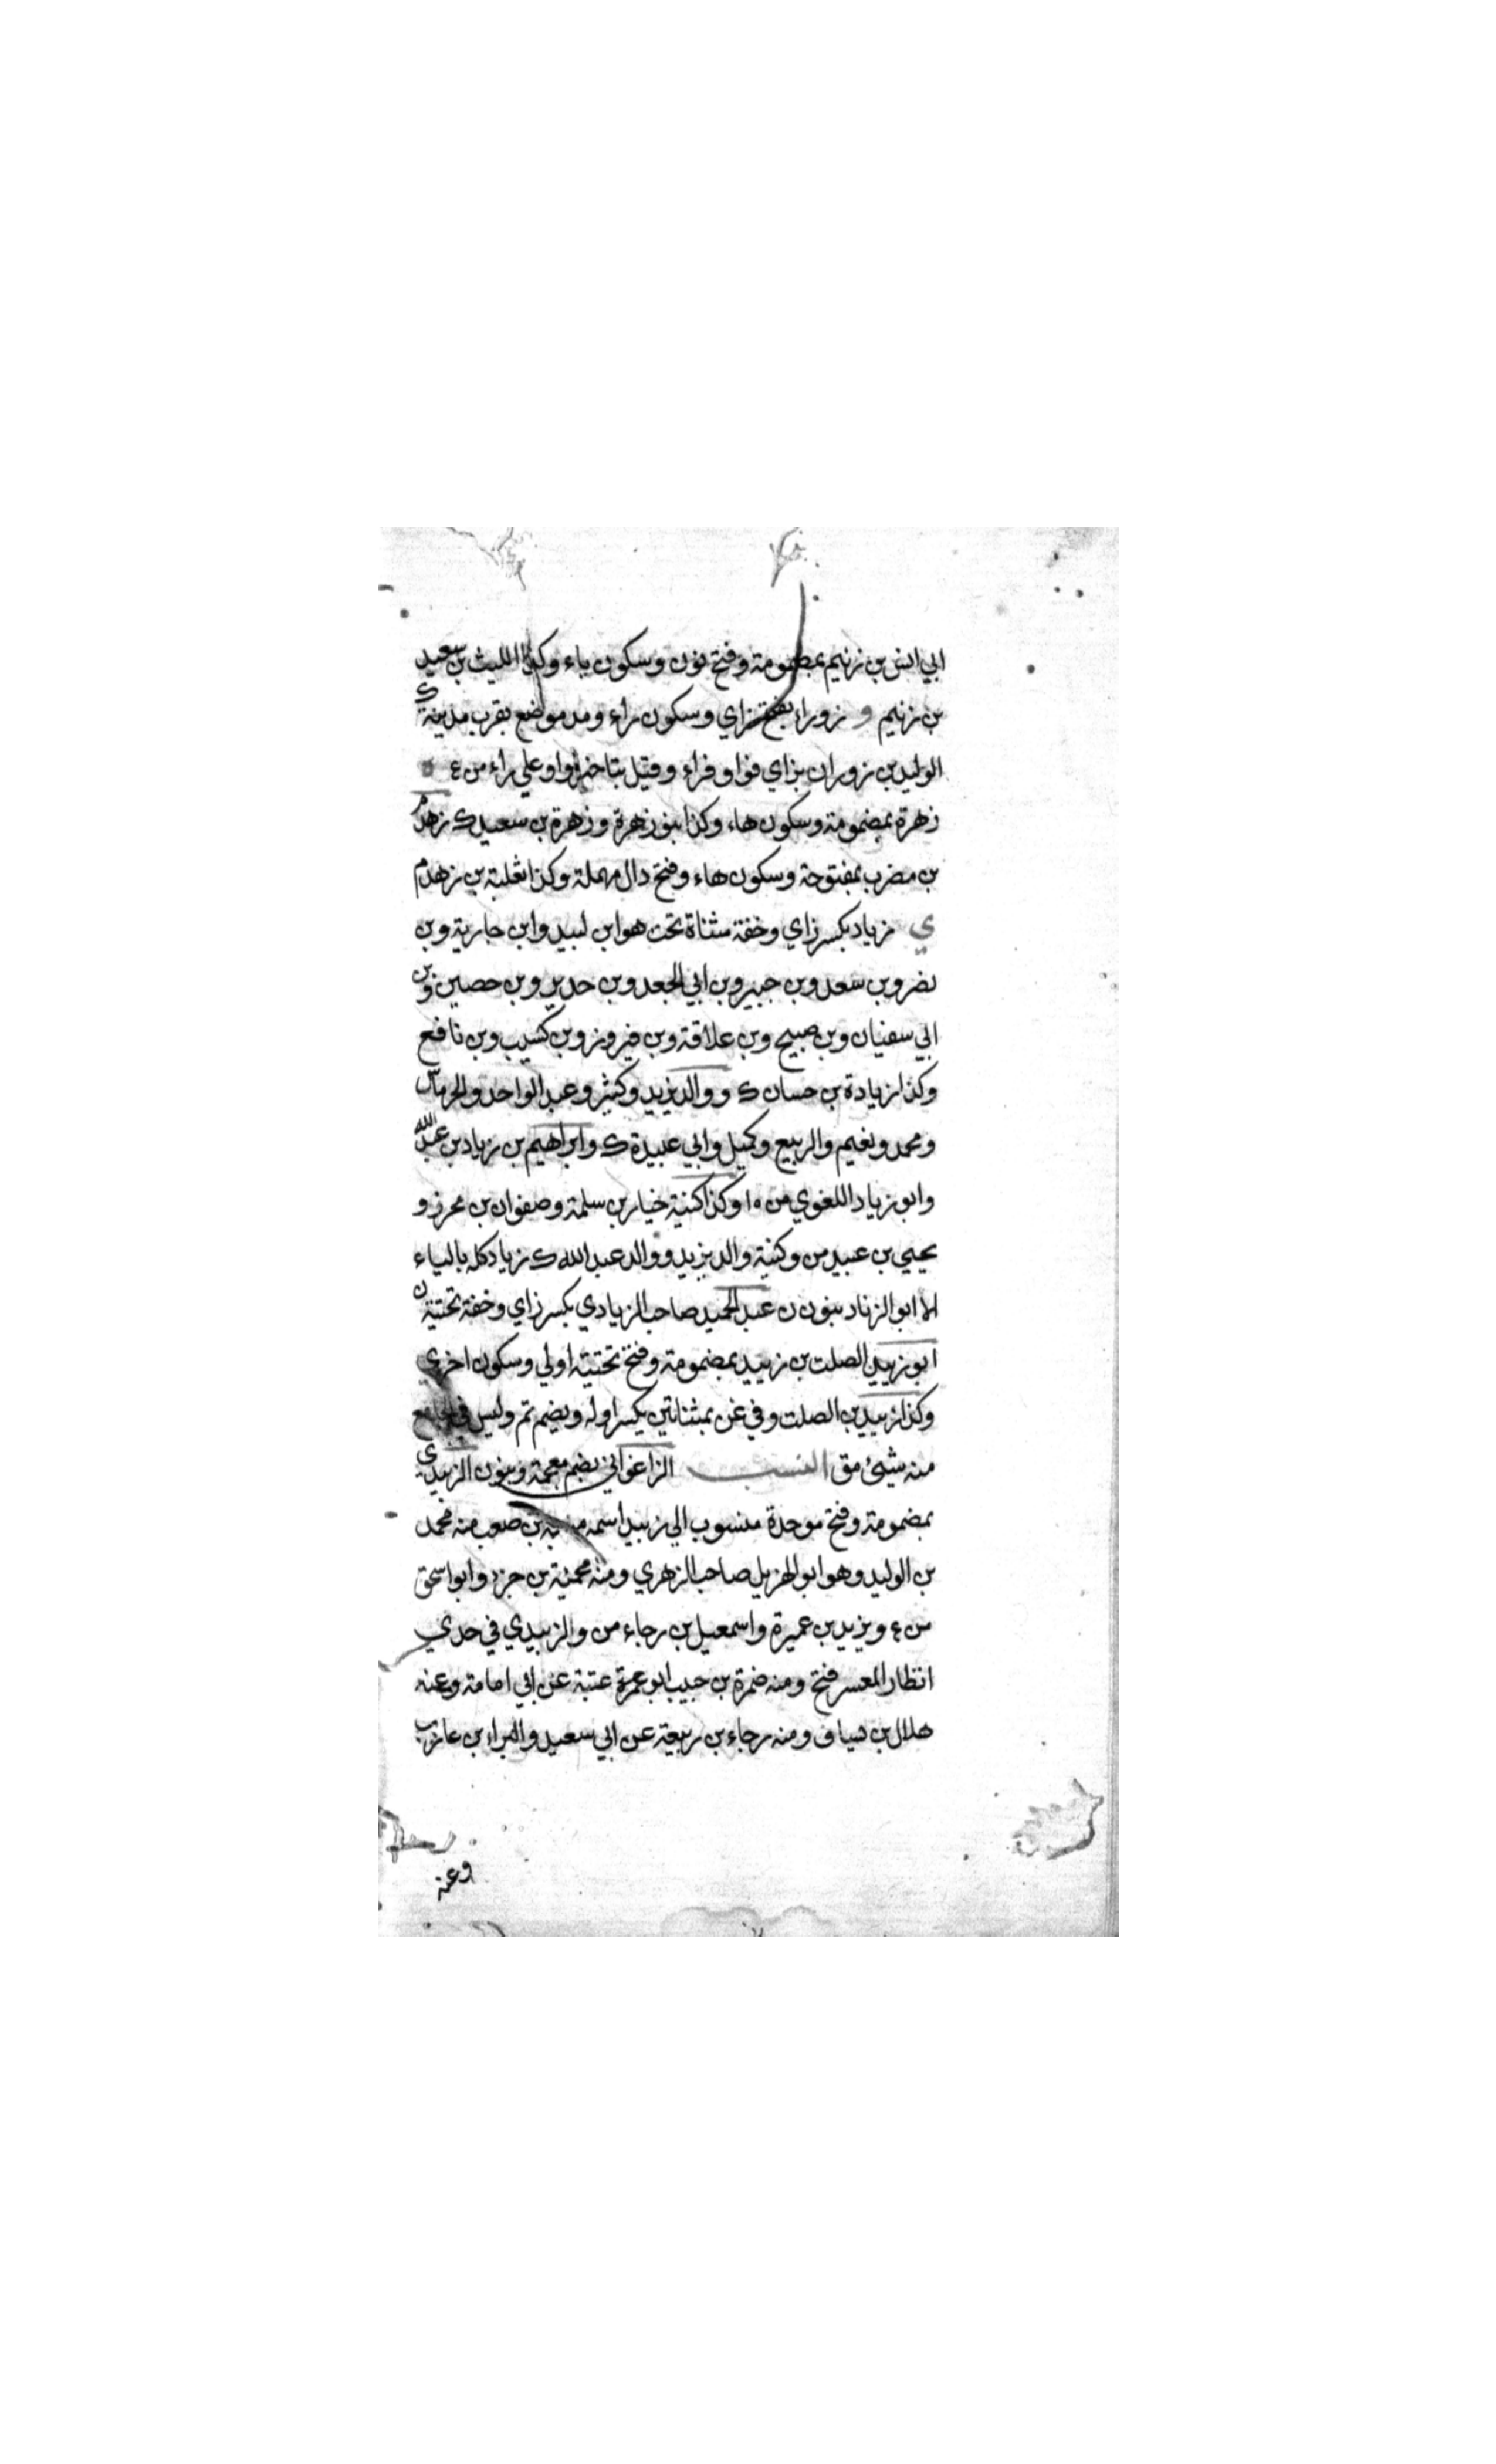 ابي انس بن زنيم بمضمومة وفتح نون وسكون ياء وكذا الليث بن سعيد
بن زنيم و زوراء بفتح زاي وسكون راء ومد موضع بقرب مدينة ك
الوليد بن زوران بزاي فواو فراء وقيل بتاخر واو على راء من ع
زهرة بمضمومة وسكون هاء وكذا بنو زهرة وزهرة بن سعيد ك زهدم
بن مضرب بمفتوحة وسكون هاء وفتح دال مهملة وكذا ثعلبة بن زهدم
ي زياد بكسر زاي وخفة مثناة تحت هو ابن لبيد وابن جارية وبن
نضر وبن سعد وبن جبير وبن ابي الجعد وبن حدير وبن حصين وبن
ابي سفيان وبن صبيح وبن علاقة وبن فيروز وبن كسيب وبن نافع
وكذا زيادة بن حسان ك ووالد يزيد وكثير وعبد الواحد والهرماس
ومحمد ونعيم والربيع وكميل وابي عبيدة ك وابراهيم بن زياد بن عبد الله
وابو زياد اللغوي من ١٠ وكذا كنية خيار بن سلمة وصفوان بن محرز و
يحيي بن عبيد من وكنية والد يزيد ووالد عبد الله ك زياد كله بالياء
الا ابو الزناد بنون ن عبد الحميد صاحب الزيادي بكسر زاي وخفة تحتية ن
ابو زييد الصلت بن زييد بمضمومة وفتح تحتية اولي وسكون اخري
وكذا زييد بن الصلت وفي غن بمثناتين بكسر اوله ويضم تم وليس في الجامع
منه شيئ مق النسب الزاغواني بضم معجمة وبنون الزبيدي
بمضمومة وفتح موحدة منسوب الي زبيد اسمه منبه بن صعب منه محمد
بن الوليد وهو ابو الهزيل صاحب الزهري ومنه محمية بن جزء وابو اسحق
س ع ويزيد بن عميرة واسمعيل بن رجاء من والزبيدي في حدي
انظار المعسر فتح ومنه ضمرة بن حبيب ابو عمرة عتبة عن ابي امامة وعنه
هلال بن يساف ومنه رجاء بن ربيعة عن ابي سعيد والبراء بن عازب
وعنه